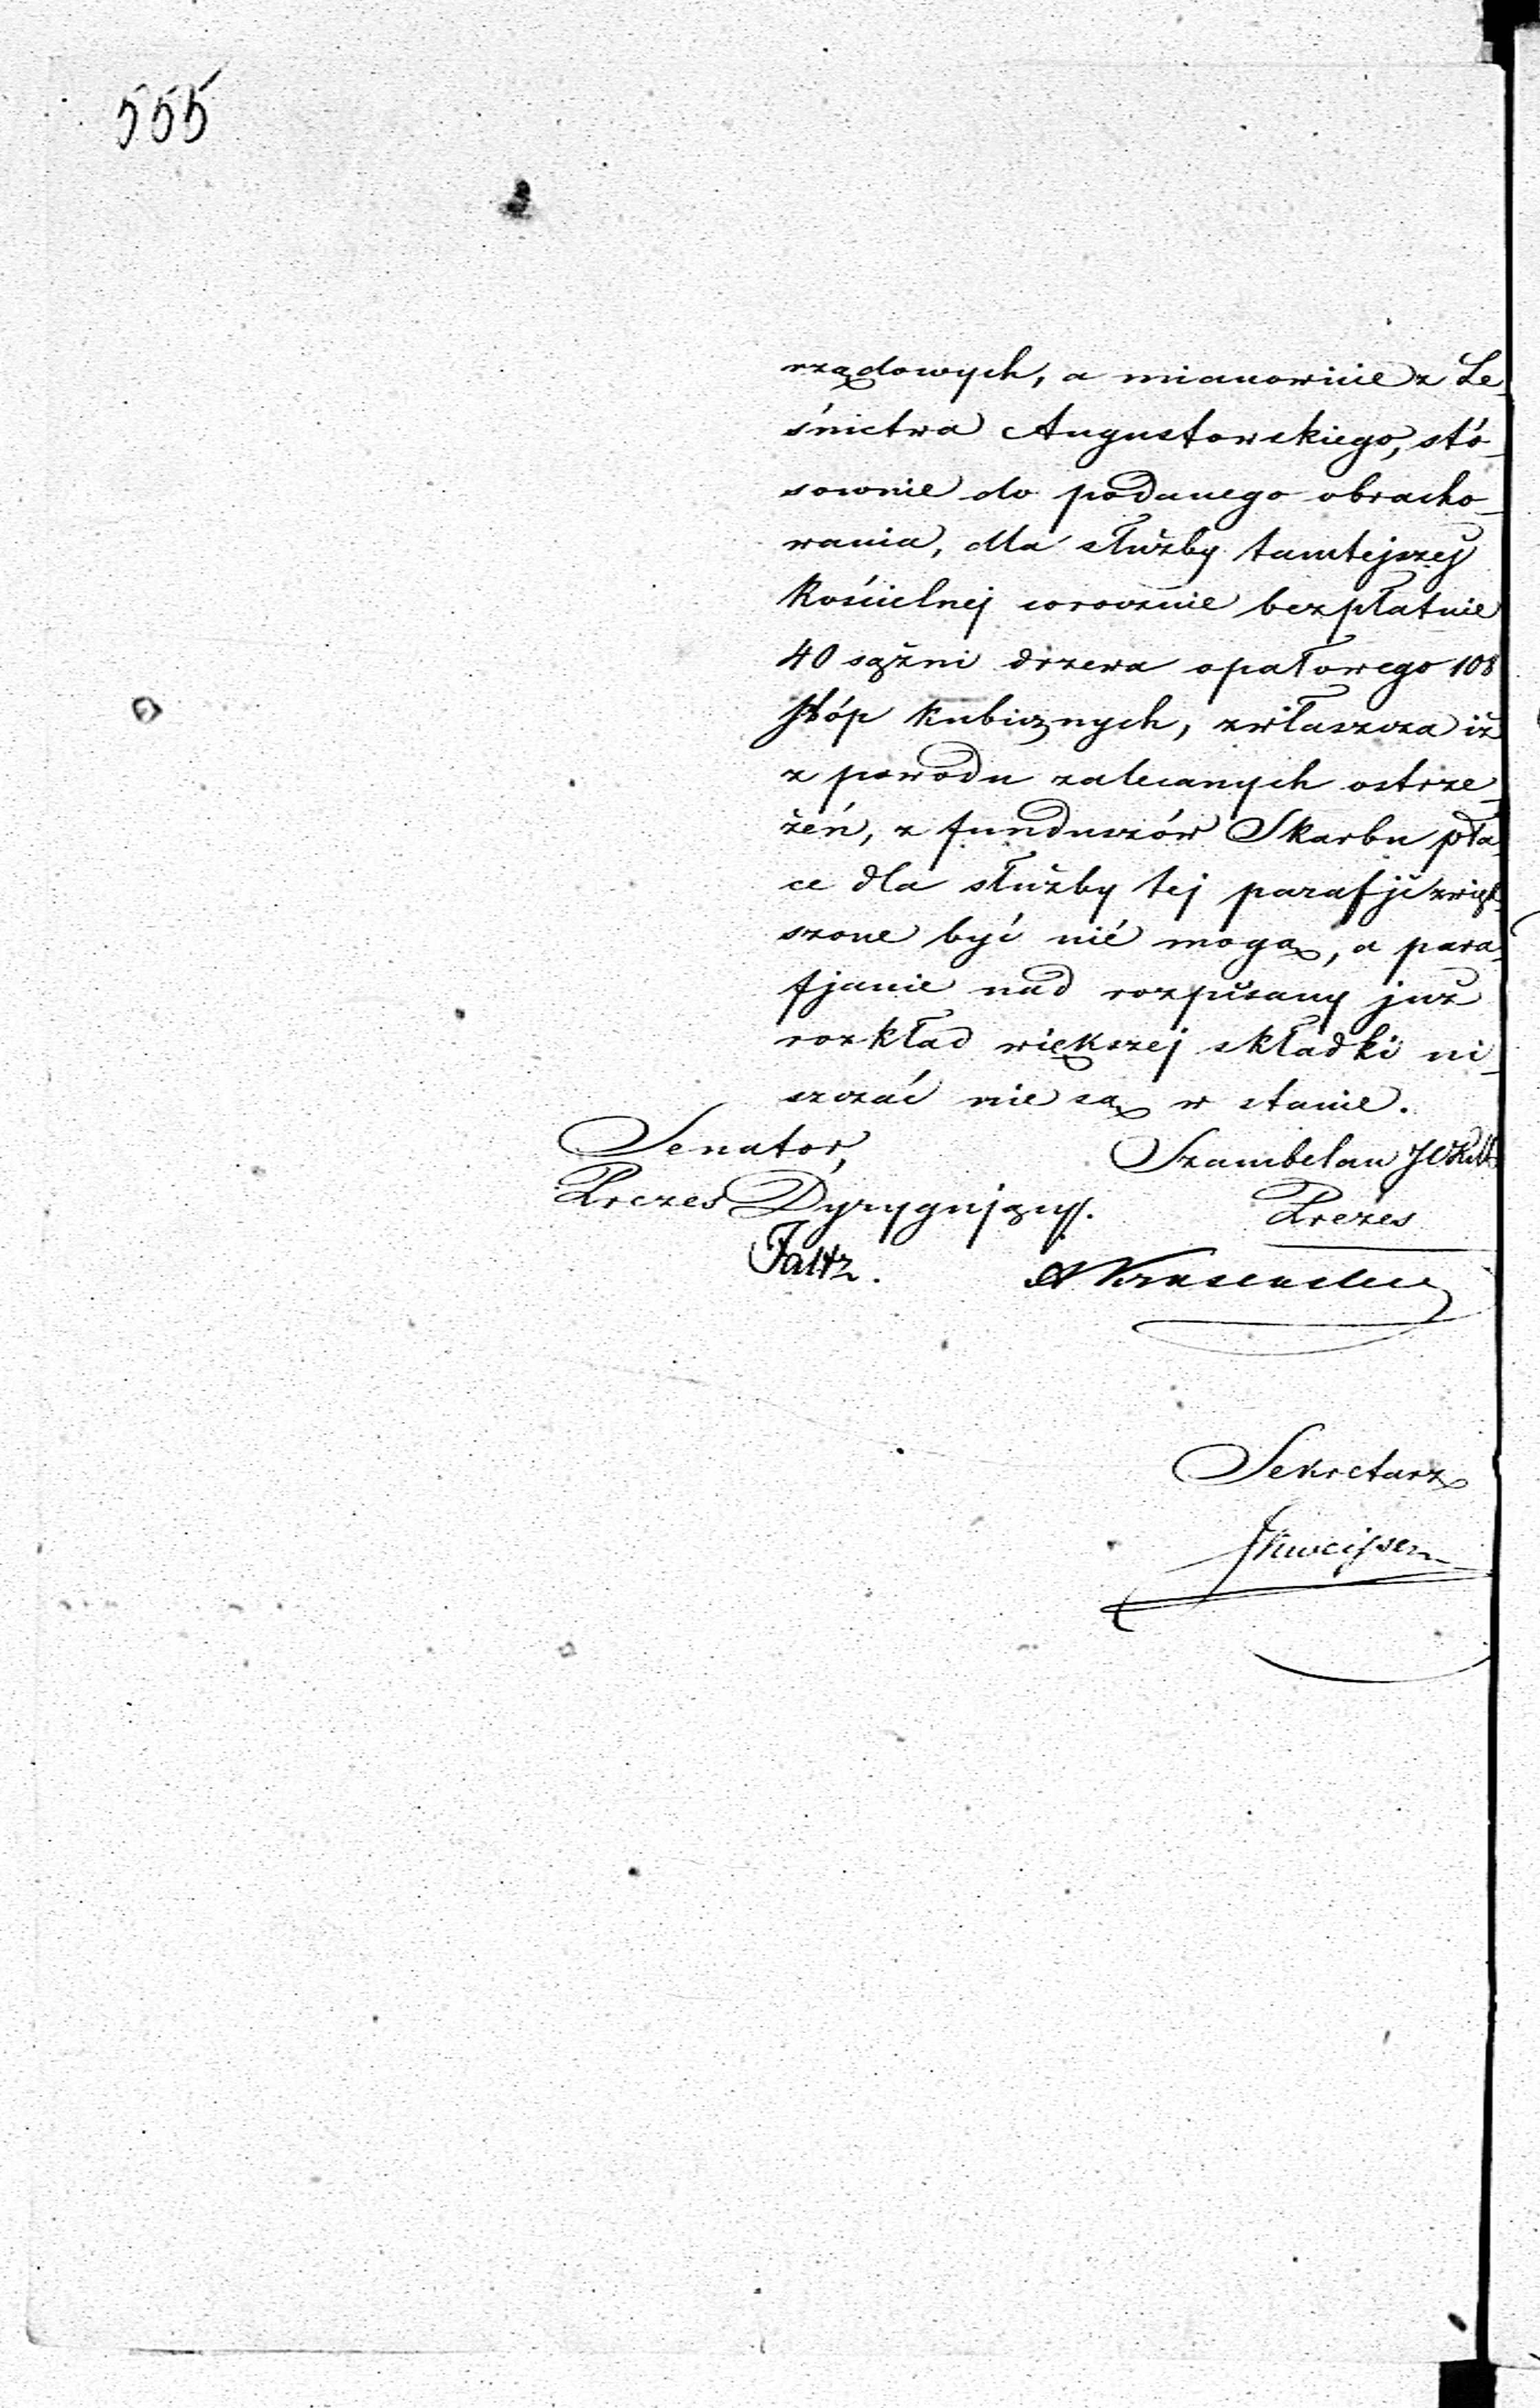 555
rządowych, a mianowicie z Le_
śnictwa Augustowskiego, stó_
sownie do podanego obracho_
wania, dla służby tamtejszej
Kościelnej corocznie bezpłatnie
40 sążni drzewa opałowego 108
stóp kubicznych, zwłaszcza iż
z powodu zalecanych ostrze_
żeń, z funduszów Skarbu pła_
ce dla służby tej parafji zwięk_
szone być nie mogą, a para_
fjanie nad rozpisany już
rozkład większej składki ui_
szczać nie są w stanie.
Senator, Szambelan
Prezes Dyrygujący. Prezes
Faltz.
Sekretarz